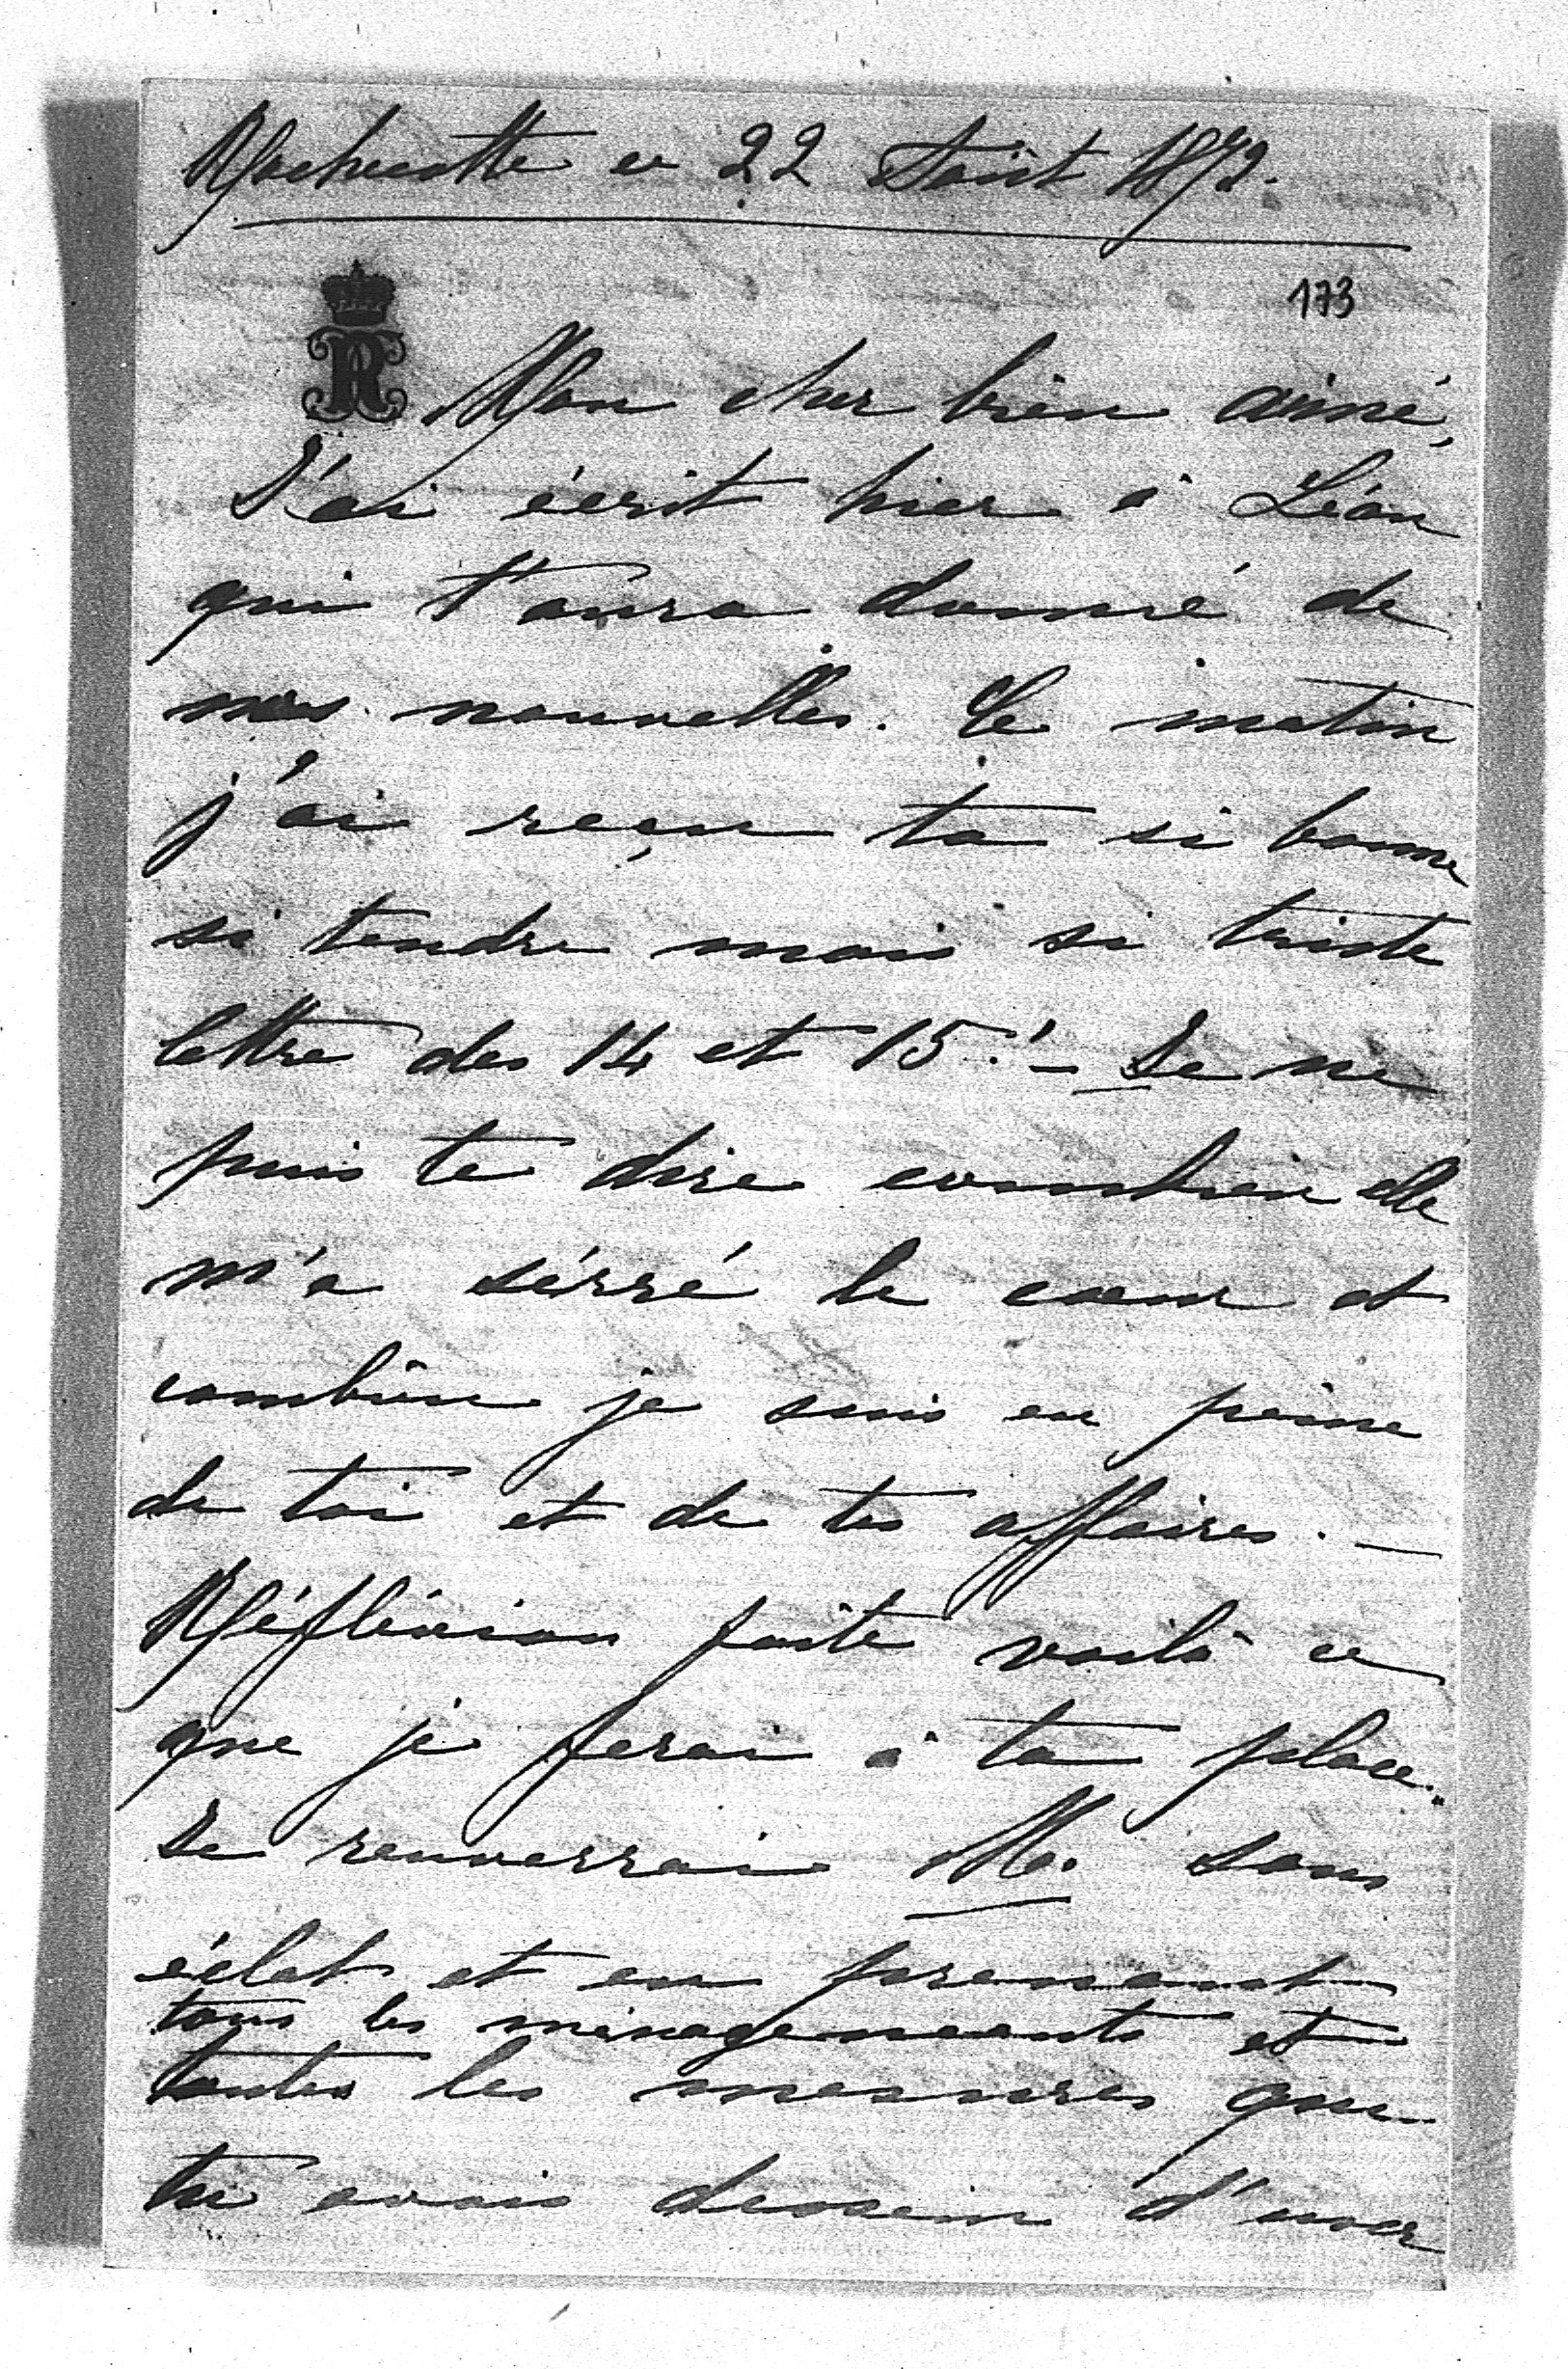 Rochecotte ce 22 Août 1872.
173
R
Mon cher bien aimé,
J'ai écrit hier à Léon
qui t'aura donné de
mes nouvelles. Ce matin
j'ai reçu ta si bonne
si tendre mais si triste
lettre des 14 et 15! — Je ne
puis te dire combien elle
m'a sérré le cœur et
combien je suis en peine
de toi et de tes affaires. —
Réfléxion faite voilà ce
que je ferai à ta place.
Je renverrai M. sans
éclat et en prenant
tous les ménagements et
toutes les mesures que
tu avais dessein d'user